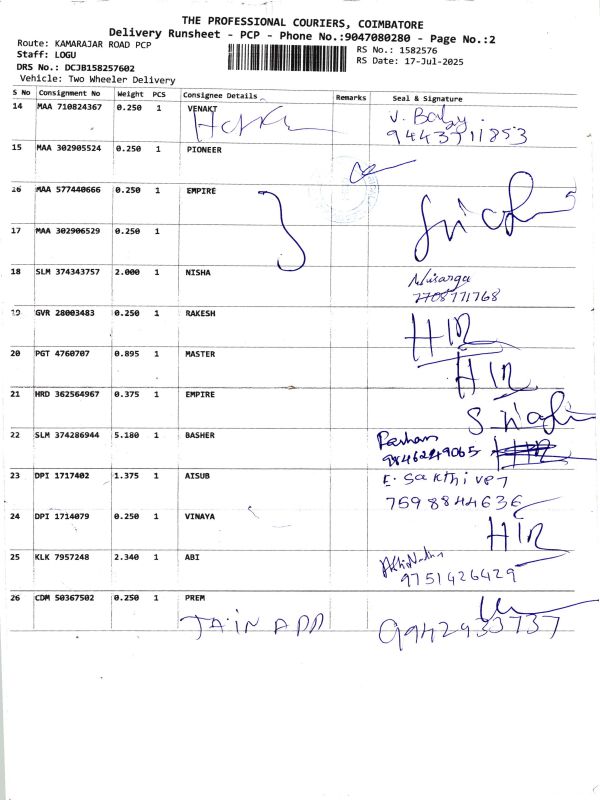 THE PROFESSIONAL COURIERS, COIMBATORE
Delivery Runsheet - PCP - Phone No.:9047080280 - Page No.:2
Route: KAMARAJAR ROAD PCP
Staff: LOGU
DRS No.: DCJB158257602
Vehicle: Two Wheeler Delivery
RS No.: 1582576
RS Date: 17-Jul-2025
S No Consignment No Weight PCS Consignee Details Remarks Seal & Signature
14 MAA 710824367 0.250 1 VENAKT V. Baby
9443711853
15 MAA 302905524 0.250 1 PIONEER
16 MAA 577440666 0.250 1 EMPIRE
17 MAA 302906529 0.250 1
18 SLM 374343757 2.000 1 NISHA Nisarga
7708771768
19 GVR 28003483 0.250 1 RAKESH HIR
20 PGT 4760707 0.895 1 MASTER HIR
21 HRD 362564967 0.375 1 EMPIRE
22 SLM 374286944 5.180 1 BASHER
9846249065
23 DPI 1717402 1.375 1 AISUB E. Sakthivel
7598844636
24 DPI 1714079 0.250 1 VINAYA HIR
25 KLK 7957248 2.340 1 ABI
9751426429
26 CDM 50367502 0.250 1 PREM
JAIN APP 9942933737